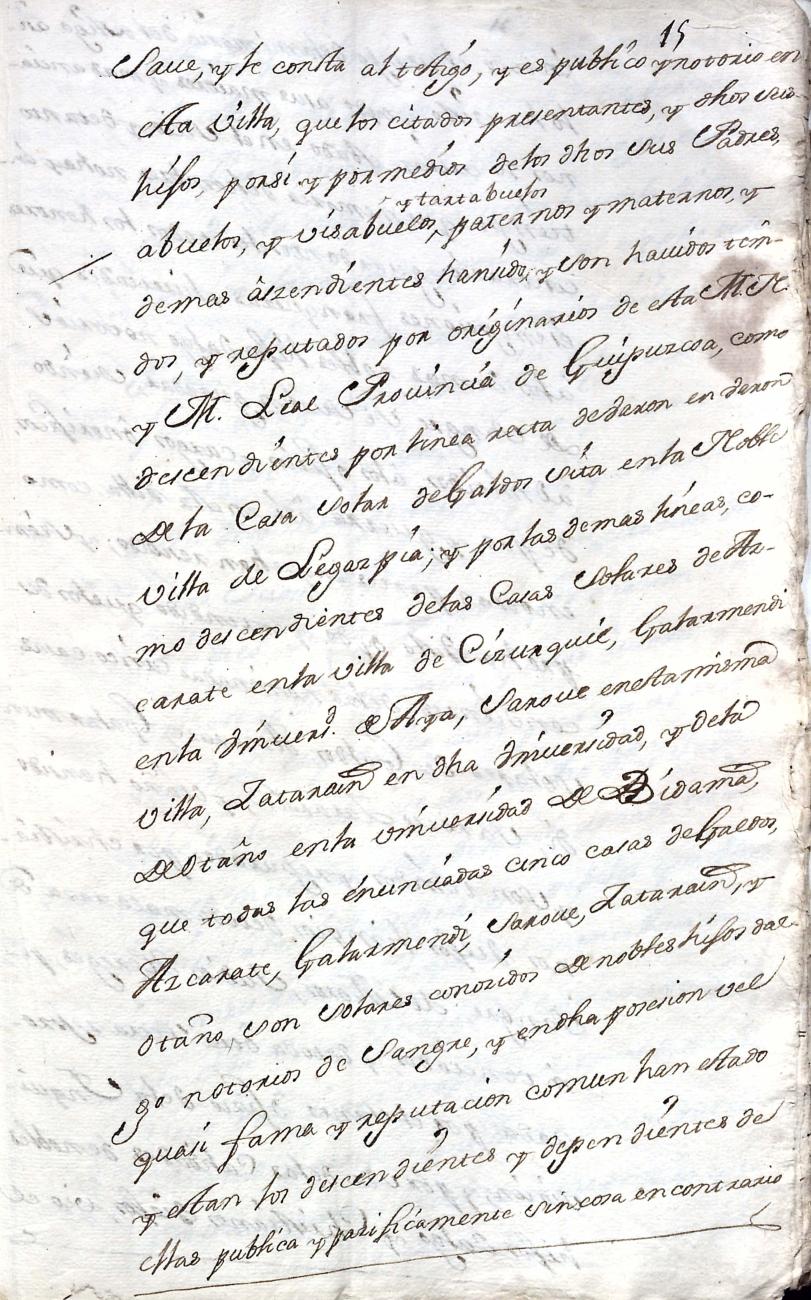 15
Saue, y le consta al testigo, y es publico y notorio en
esta Villa, que los citados presentantes, y dhos sus
hijos, porsi y pormedios delos dhos sus Padres,
y tartabuelos
abuelos, y visabuelos, paternos y maternos, y
demas aszendientes hansido, y son hauidos teni-
dos, y reputados por originarios de esta M. N.
y M. Leal Prouincia de Guipuzcoa, como
descendientes por linea recta de daron en daron
de la Casa Solar de Galdos sita enla Noble
villa de Legazpia; y por las demas lineas, co-
mo descendientes delas Casas Solares de Az-
carate enla villa de Cizurquil, Gatarmendi
enla Vniversd. de Aya, Saroue enestamisma
villa, Zatarain en dha Vniversidad, y dela
de Otaño enla vniversidad de Bidania,
que todas las enunciadas cinco casas de Galdos,
Azcarate, Gatarmendi, Saroue, Zatarain, y
Otaño, son solares conozidos de nobles hijos dal
go notorios de Sangre, y endha posesion vel
quasi fama y reputacion comun han estado
y estan los descendientes y dependientes de
ellas publica y pazificamente sincosa encontrario